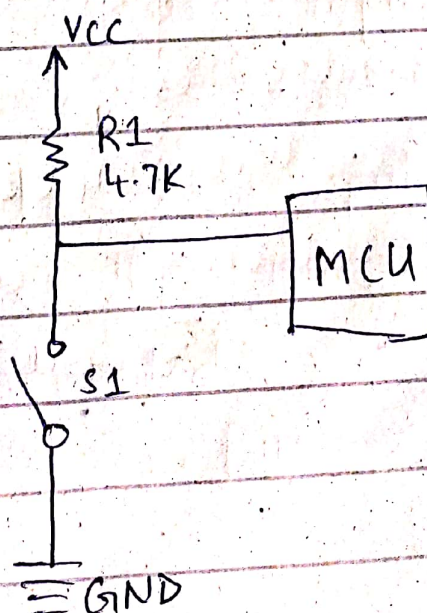 VCC
R1
4.7K
MCU
S1
GND